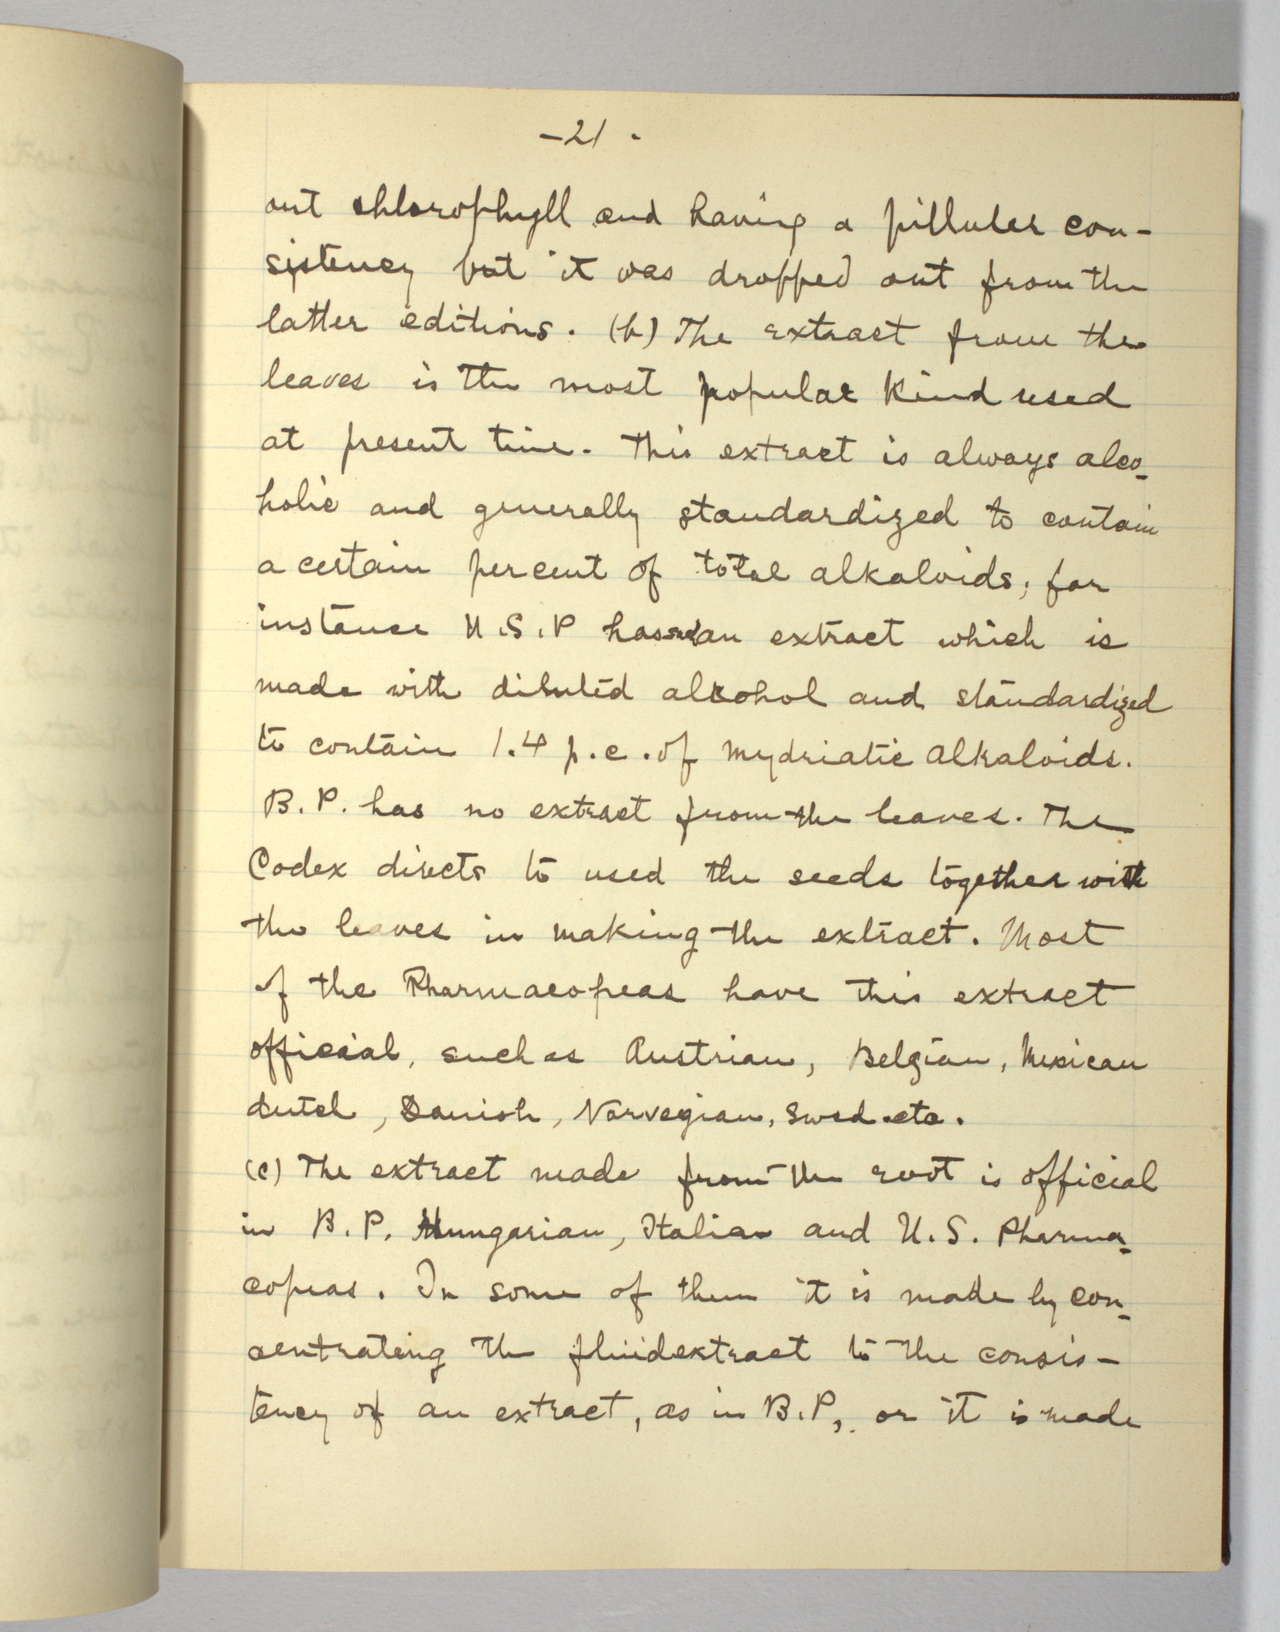 -21-
out chlorophyll and having a pillular con-
sistency but it was dropped out from the
latter editions. (b) The extract from the
leaves is the most popular kind used
at present time. This extract is always alco-
holic and generally standardized to contain
a certain percent of total alkaloids; for
instance U.S.P has an extract which is
made with diluted alcohol and standardized
to contain 1.4 p.c. of mydriatic alkaloids.
B.P. has no extract from the leaves. The
Codex directs to used the seeds together with
the leaves in making the extract. Most
of the Pharmacopeas have this extract
official, such as Austrian, Belgian, Mexican
dutch, Danish, Norvegian, Swed. etc.
(c) The extract made from the root is official
in B.P. Hungarian, Italian and U.S. Pharma-
copeas. In some of them it is made by con-
centrating the fluidextract to the consis-
tency of an extract, as in B.P., or it is made